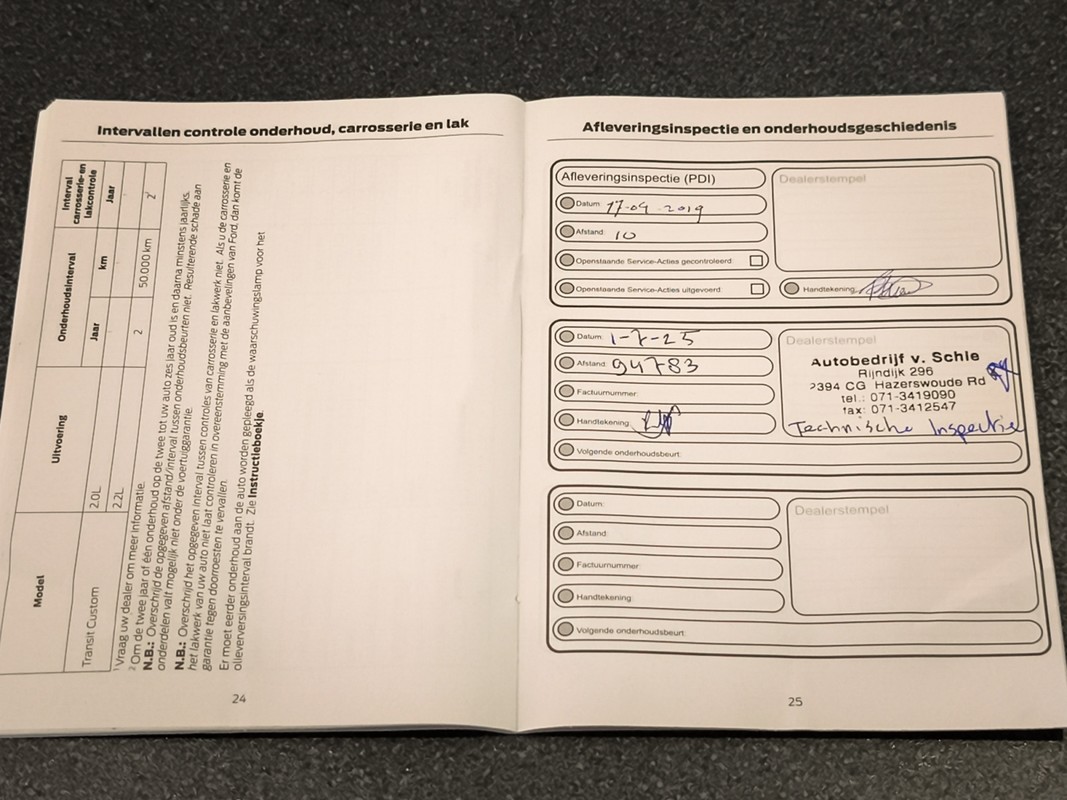 Intervallen controle onderhoud, carrosserie en lak
Model
Uitvoering
Onderhoudsinterval
Interval carrosserie- en lakcontrole
Jaar
km
Jaar
Transit Custom
2,0L
2
50.000 km
2²
2,2L
¹ Vraag uw dealer om meer informatie.
² Om de twee jaar of één onderhoud op de twee tot uw auto zes jaar oud is en daarna minstens jaarlijks.
N.B.: Overschrijd de opgegeven afstand/interval tussen onderhoudsbeurten niet. Resulterende schade aan
onderdelen valt mogelijk niet onder de voertuiggarantie.
N.B.: Overschrijd het opgegeven interval tussen controles van carrosserie en lakwerk niet. Als u de carrosserie en
het lakwerk van uw auto niet laat controleren in overeenstemming met de aanbevelingen van Ford, dan komt de
garantie tegen doorroesten te vervallen.
Er moet eerder onderhoud aan de auto worden gepleegd als de waarschuwingslamp voor het
olieverversingsinterval brandt. Zie Instructieboekje.
24
Afleveringsinspectie en onderhoudsgeschiedenis
Afleveringsinspectie (PDI)
Dealerstempel
Datum: 17-04-2019
Afstand: 10
Openstaande Service-Acties gecontroleerd:
Openstaande Service-Acties uitgevoerd:
Handtekening:
Datum: 1-7-25
Afstand: 94783
Factuurnummer:
Handtekening:
Volgende onderhoudsbeurt:
Dealerstempel
Autobedrijf v. Schie
Rijndijk 296
2394 CG Hazerswoude Rd
tel.: 071-3419090
fax: 071-3412547
Technische Inspectie
Datum:
Afstand:
Factuurnummer:
Handtekening:
Volgende onderhoudsbeurt:
Dealerstempel
25